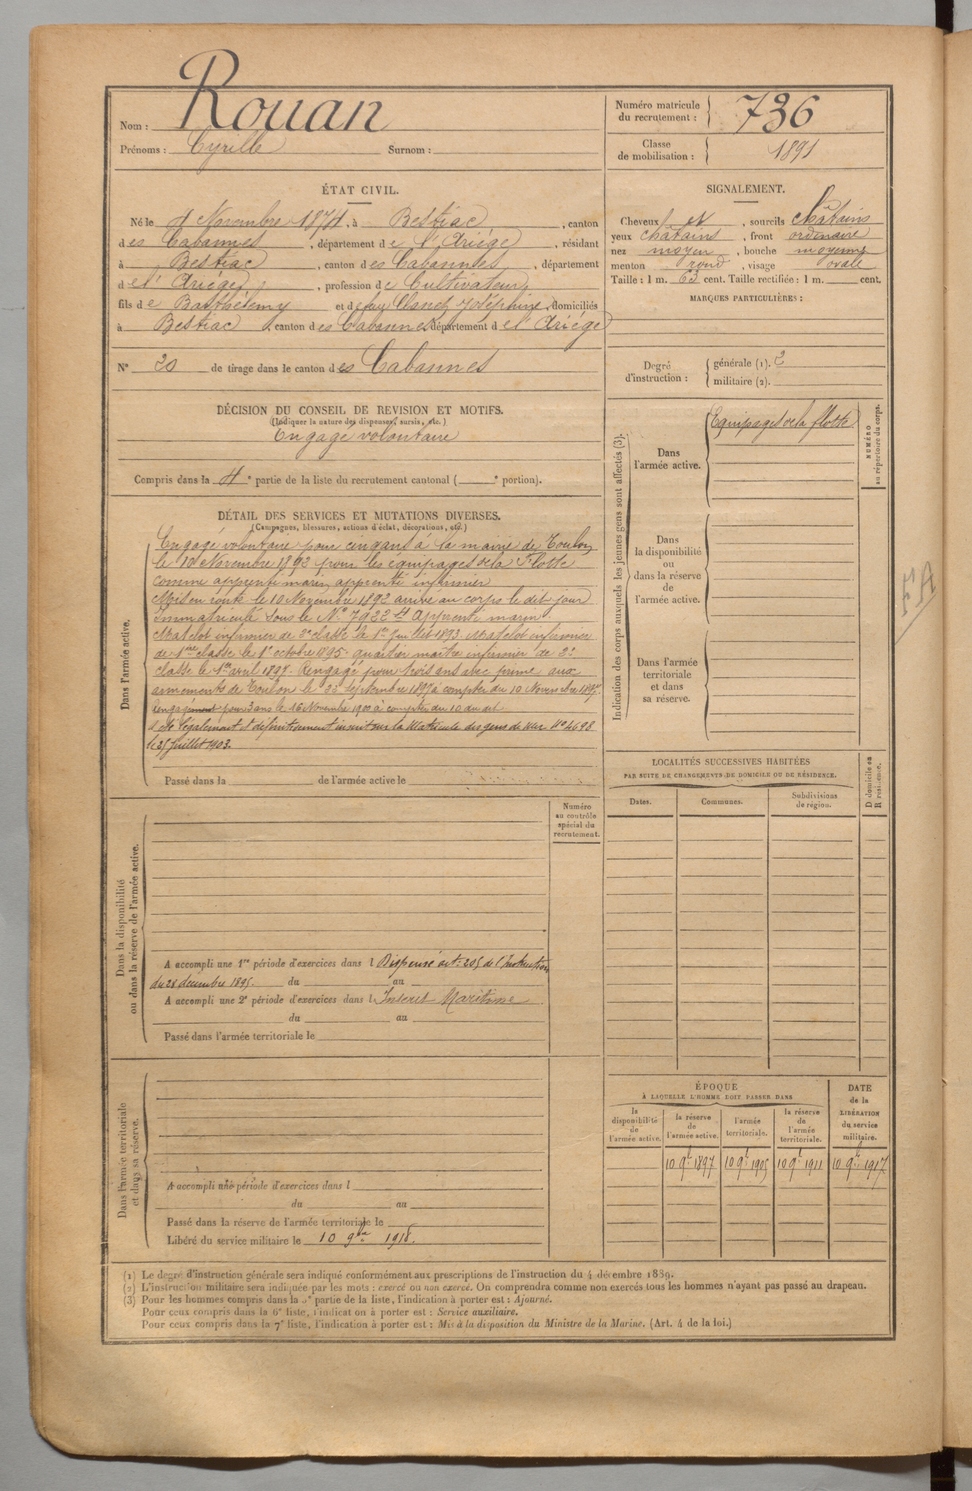 Nom : Rouan
Prénoms : Cyrille Surnom :
Numéro matricule du recrutement : 736
Classe de mobilisation : 1891
ÉTAT CIVIL.
Né le 4 Novembre 1874, à Bestiac, canton
des Cabannes, département de l'Ariège, résidant
à Bestiac, canton des Cabannes, département
de l'Ariège, profession de Cultivateur,
fils de Barthélemy et de Joséphine, domiciliés
à Bestiac, canton des Cabannes, département de l'Ariège
N° 20 de tirage dans le canton des Cabannes
SIGNALEMENT.
Cheveux et, sourcils châtains
yeux châtains, front ordinaire
nez moyen, bouche moyenne
menton rond, visage ovale
Taille : 1 m. 63 cent. Taille rectifiée : 1 m. cent.
MARQUES PARTICULIÈRES :
Degré d'instruction :
générale (1). 2
militaire (2).
DÉCISION DU CONSEIL DE REVISION ET MOTIFS.
(Indiquer la nature des dispenses, sursis, etc.)
Engagé volontaire
Compris dans la 4e partie de la liste du recrutement cantonal ( e portion).
DÉTAIL DES SERVICES ET MUTATIONS DIVERSES.
(Campagnes, blessures, actions d'éclat, décorations, etc.)
Dans l'armée active.
Engagé volontaire pour cinq ans à la mairie de Toulon
le 10 Novembre 1892 pour les équipages de la Flotte
comme apprenti marin apprenti infirmier
Mis en route le 10 Novembre 1892 arrivé au corps le dit jour
Immatriculé sous le N° 7922 apprenti marin.
Matelot infirmier de 2e classe le 1er Juillet 1893. Matelot infirmier
de 1ère classe le 1er octobre 1895. quartier maître infirmier de 2e
classe le 1er avril 1897. Rengagé pour trois ans avec prime aux
armements de Toulon le 23 Septembre 1897 à compter du 10 Novembre 1897.
Rengagement pour 3 ans le 16 Novembre 1900 à compter du 10 du dit
A été légalement et définitivement inscrit sur la Matricule des gens de mer N° 4698
le 25 Juillet 1903.
Passé dans la de l'armée active le
Indication des corps auxquels les jeunes gens sont affectés (3).
Dans l'armée active.
Equipages de la flotte
Dans la disponibilité ou dans la réserve de l'armée active.
Dans l'armée territoriale et dans sa réserve.
NUMÉRO au répertoire du corps.
LOCALITÉS SUCCESSIVES HABITÉES
PAR SUITE DE CHANGEMENTS DE DOMICILE OU DE RÉSIDENCE.
Dates. Communes. Subdivisions de région.
D domicile ou R résidence.
Dans la disponibilité ou dans la réserve de l'armée active.
Numéro au contrôle spécial du recrutement.
A accompli une 1re période d'exercices dans l Dispensé art. 205 de l'Instruction
du 28 décembre 1895. du au
A accompli une 2e période d'exercices dans l Inscrit Maritime
du au
Passé dans l'armée territoriale le
Dans l'armée territoriale et dans sa réserve.
A accompli une période d'exercices dans l
du au
Passé dans la réserve de l'armée territoriale le
Libéré du service militaire le 10 9bre 1918.
ÉPOQUE
À LAQUELLE L'HOMME DOIT PASSER DANS
la disponibilité de l'armée active.
la réserve de l'armée active.
l'armée territoriale.
la réserve de l'armée territoriale.
DATE de la LIBÉRATION du service militaire.
10 9bre 1897 10 9bre 1905 10 9bre 1911 10 9bre 1917
(1) Le degré d'instruction générale sera indiqué conformément aux prescriptions de l'instruction du 4 décembre 1889.
(2) L'instruction militaire sera indiquée par les mots : exercé ou non exercé. On comprendra comme non exercés tous les hommes n'ayant pas passé au drapeau.
(3) Pour les hommes compris dans la 5e partie de la liste, l'indication à porter est : Ajourné.
Pour ceux compris dans la 6e liste, l'indication à porter est : Service auxiliaire.
Pour ceux compris dans la 7e liste, l'indication à porter est : Mis à la disposition du Ministre de la Marine. (Art. 4 de la loi.)